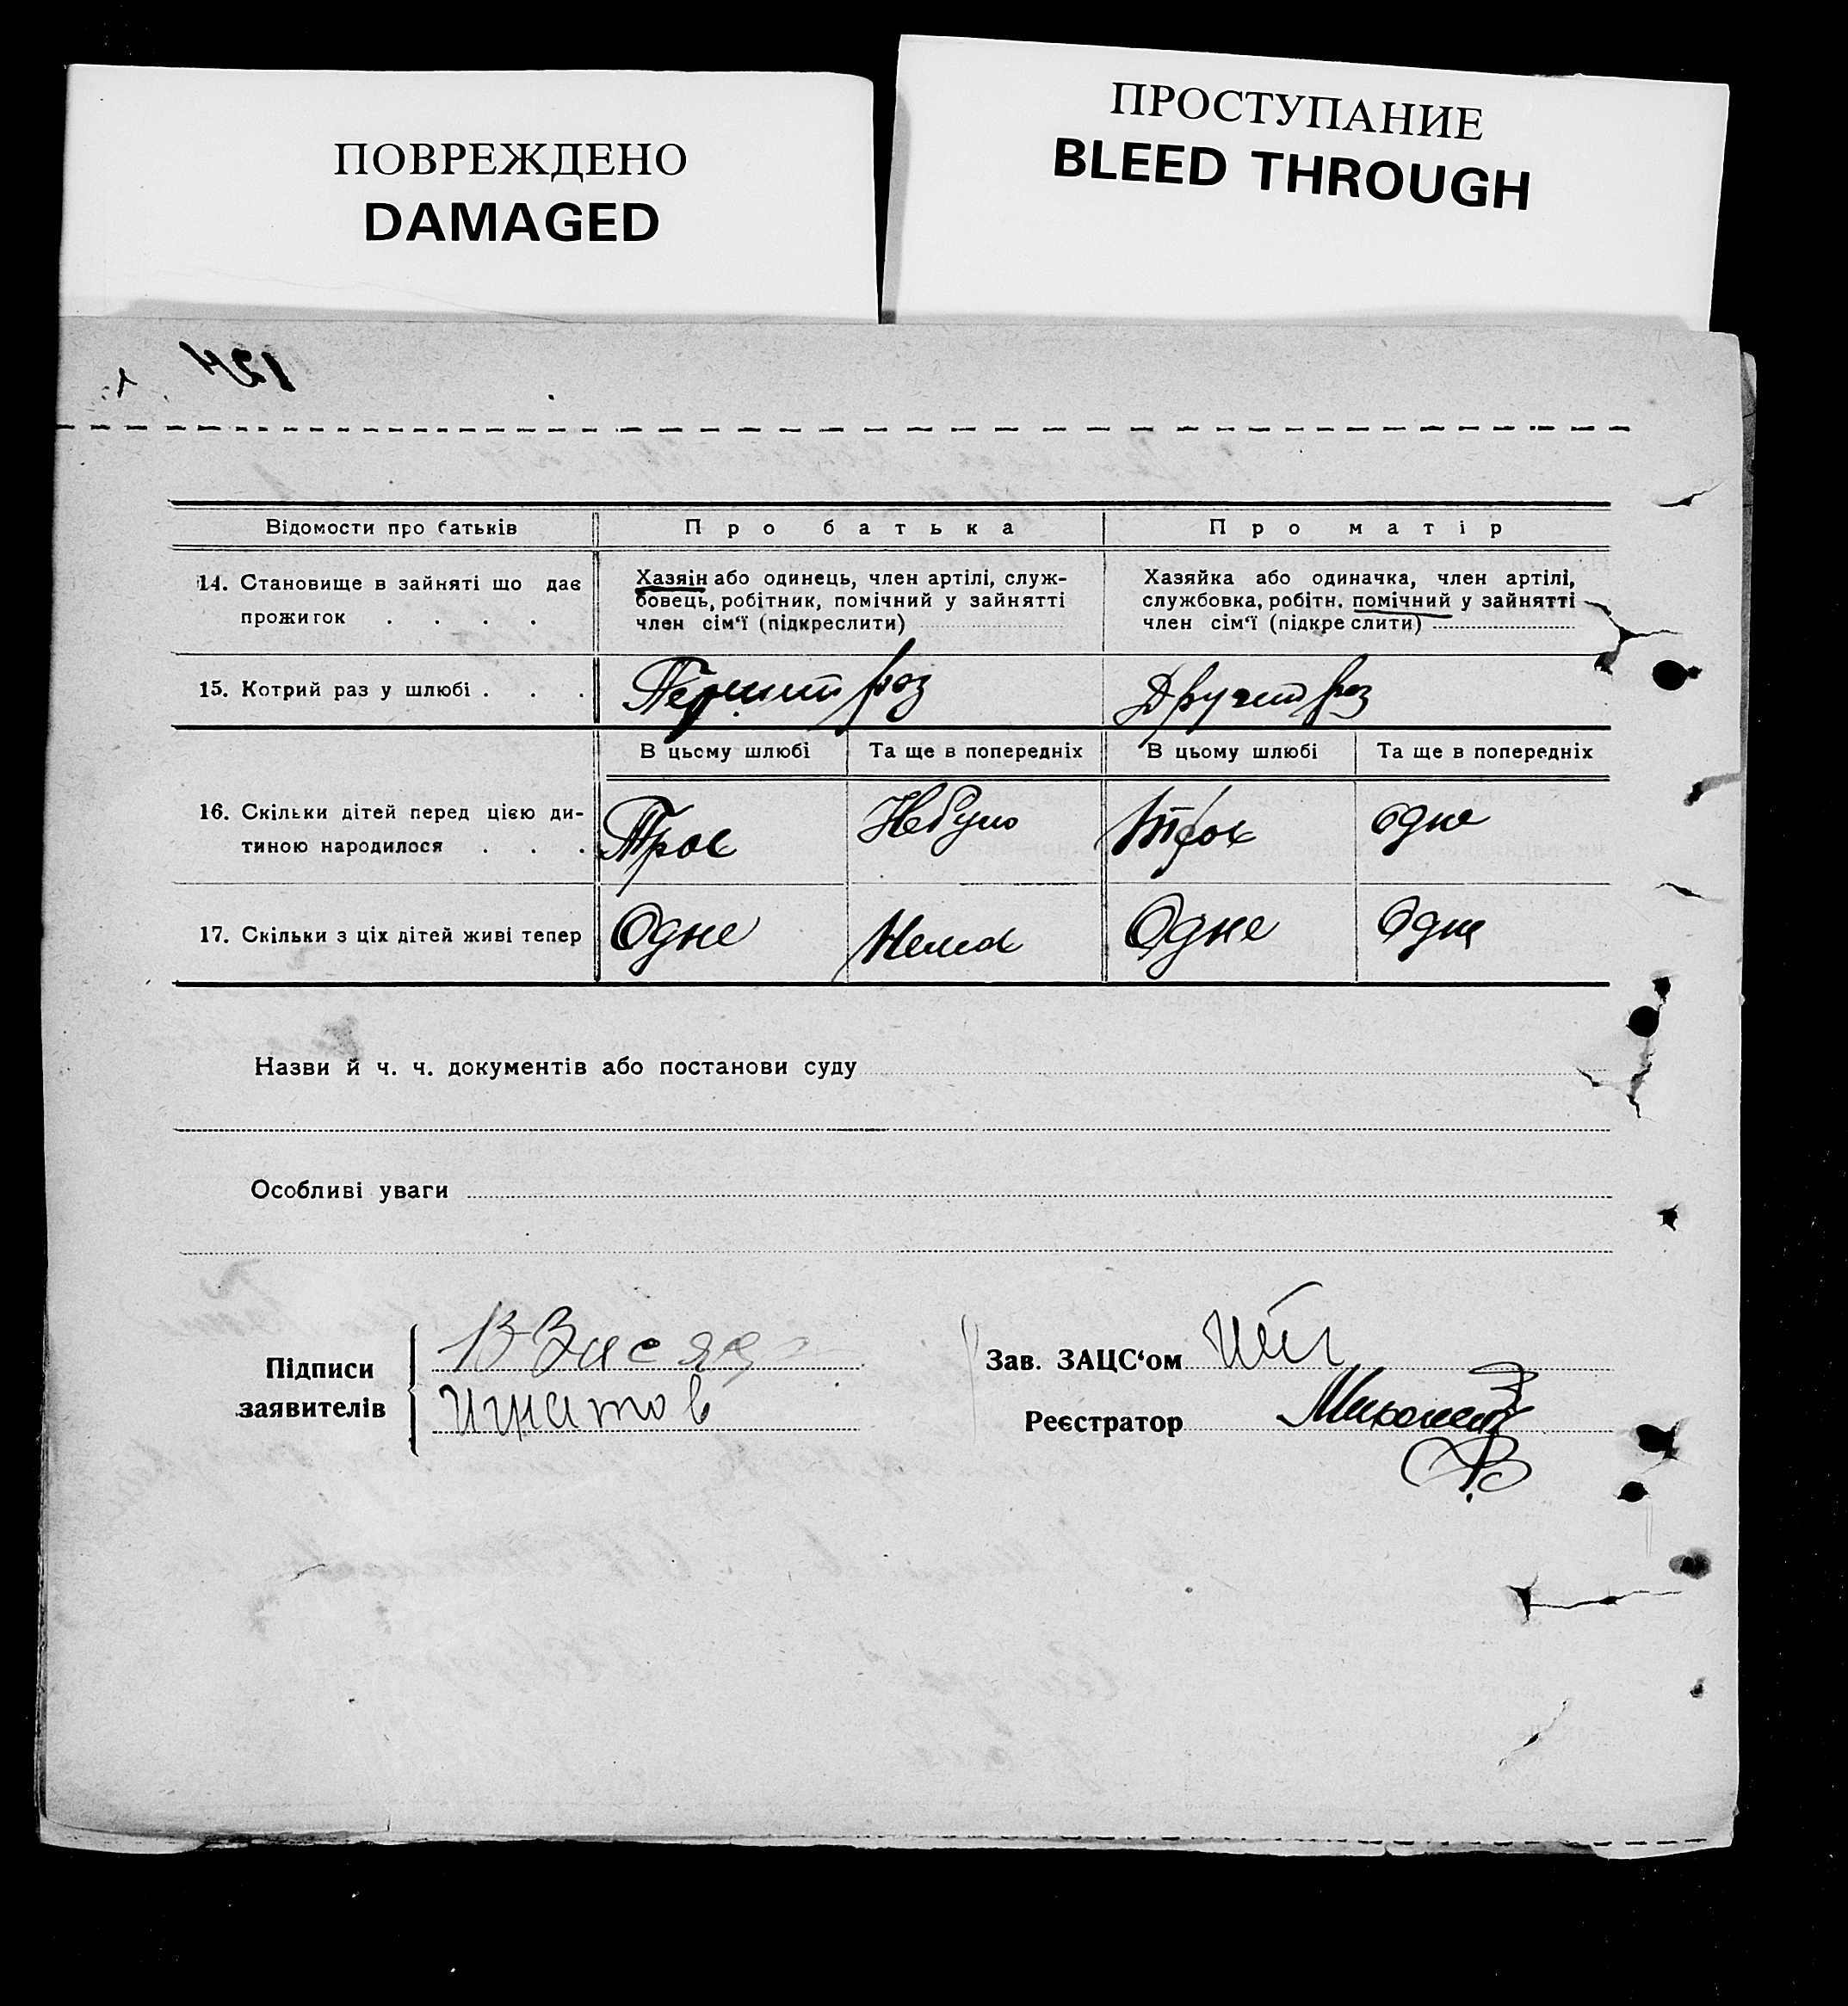 ПОВРЕЖДЕНО
DAMAGED
ПРОСТУПАНИЕ
BLEED THROUGH
124
Відомости про батьків
Про батька
Про матір
14. Становище в зайняті що дає
прожиток . . . .
Хазяін або одинець, член артілі, служ-
бовець, робітник, помічний у зайнятті
член сім'ї (підкреслити)
Хазяйка або одиначка, член артілі,
службовка, робітн. помічний у зайнятті
член сім'ї (підкреслити)
15. Котрий раз у шлюбі . . .
Перший раз
Другий раз
В цьому шлюбі
Та ще в попередніх
В цьому шлюбі
Та ще в попередніх
16. Скільки дітей перед цією ди-
тиною народилося . . .
Троє
Небуло
Троє
одне
17. Скільки з ціх дітей живі тепер
Одне
Нема
Одне
Одне
Назви й ч. ч. документів або постанови суду
Особливі уваги
Підписи
заявителів
Игнатов
Зав. ЗАЦС'ом
Реєстратор